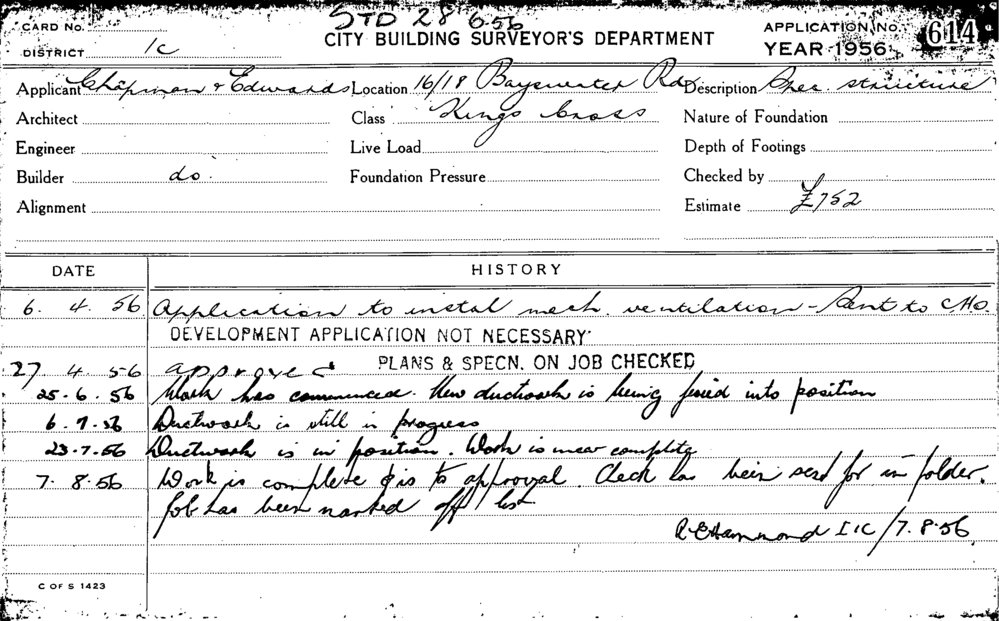 STD 28 6 56
CARD No.
CITY BUILDING SURVEYOR'S DEPARTMENT
APPLICATION No. 614
DISTRICT 1C
YEAR 1956
Applicant Chapman & Edwards Location 16/18 Bayswater Rd Description structure
Architect Class Kings Cross Nature of Foundation
Engineer Live Load Depth of Footings
Builder do. Foundation Pressure Checked by
Alignment Estimate £752
DATE HISTORY
6. 4. 56 Application to instal mech. ventilation - Sent to C.H.O.
DEVELOPMENT APPLICATION NOT NECESSARY
PLANS & SPECN. ON JOB CHECKED
27 4 56 approved
25.6.56 Work has commenced. New ductwork is being fixed into position
6.7.56 Ductwork is still in progress
23.7.56 Ductwork is in position. Work is near complete
7. 8. 56 Work is complete & is to approval. Check has been sent for in folder.
Job has been marked off list
R E Hammond I 1C/7.8.56
C OF S 1423